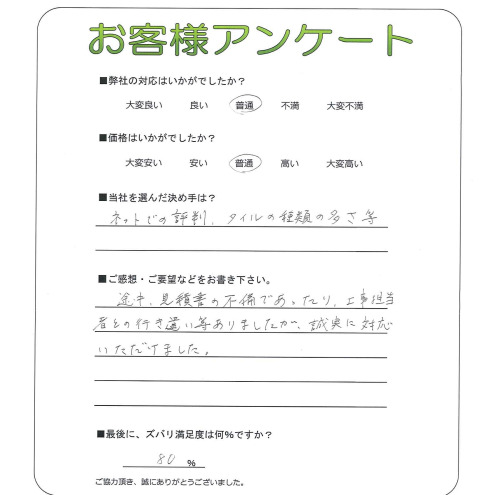 お客様アンケート
■弊社の対応はいかがでしたか？
大変良い 良い 普通 不満 大変不満
■価格はいかがでしたか？
大変安い 安い 普通 高い 大変高い
■当社を選んだ決め手は？
ネットでの評判、タイルの種類の多さ等
■ご感想・ご要望などをお書き下さい。
途中、見積書の不備であったり、工事担当
者との行き違い等ありましたが、誠実に対応
いただけました。
■最後に、ズバリ満足度は何%ですか？
80 %
ご協力頂き、誠にありがとうございました。